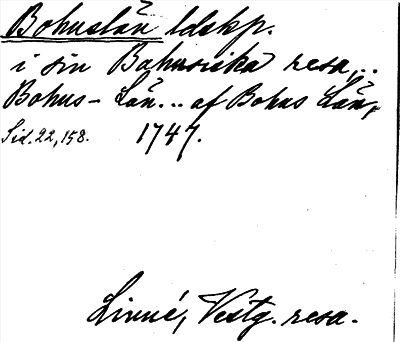 Bohuslän ldskp.
i sin Bahusiska resa,..
Bohus-Län... af Bohus Län,
Sid. 22, 158. 1747.
Linné, Vestg. resa.